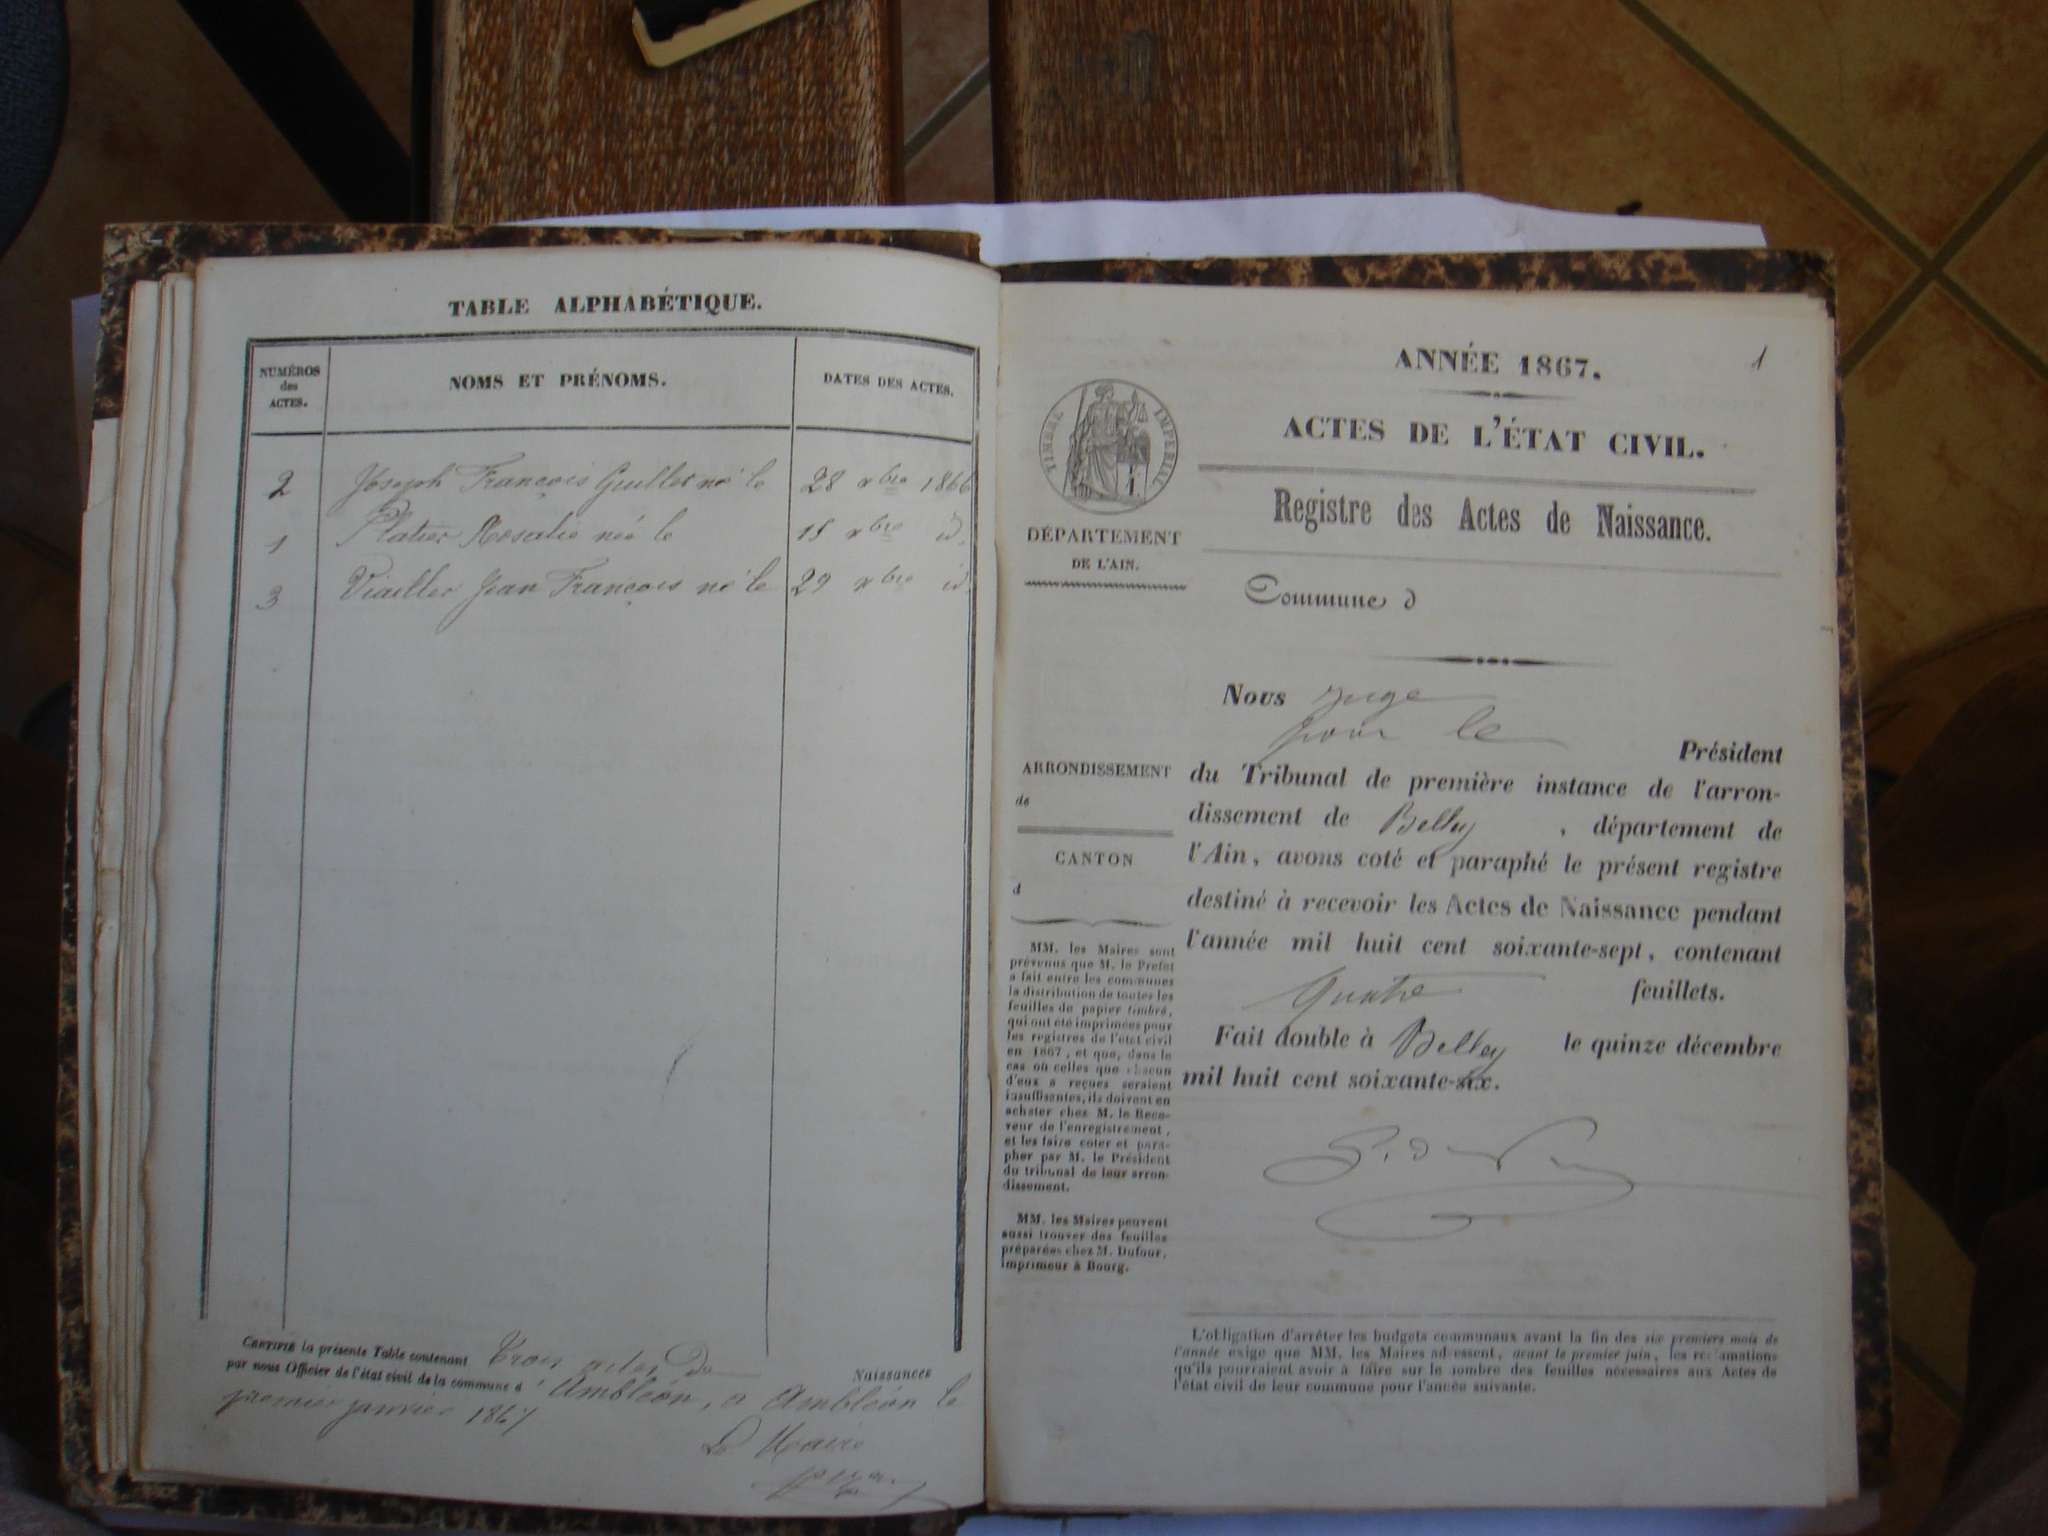 TABLE ALPHABÉTIQUE.
NUMÉROS
des
ACTES.
NOMS ET PRÉNOMS.
DATES DES ACTES.
2 Joseph François Guillet né le 28 xbre 1866
1 Platier Rosalie née le 15 xbre id.
3 Viallet Jean François né le 29 xbre id.
CERTIFIÉ la présente Table contenant trois actes de Naissances
par nous Officier de l'état civil de la commune d'Ambléon, a Ambléon le
premier janvier 1867
Le Maire
1
ANNÉE 1867.
ACTES DE L'ÉTAT CIVIL.
Registre des Actes de Naissance.
TIMBRE IMPÉRIAL
DÉPARTEMENT
DE L'AIN.
Commune d
Nous juge
pour le
Président
du Tribunal de première instance de l'arron-
dissement de Belley, département de
l'Ain, avons coté et paraphé le présent registre
destiné à recevoir les Actes de Naissance pendant
l'année mil huit cent soixante-sept, contenant
quatre feuillets.
Fait double à Belley le quinze décembre
mil huit cent soixante-six.
ARRONDISSEMENT
de
CANTON
d
MM. les Maires sont
prévenus que M. le Préfet
a fait entre les communes
la distribution de toutes les
feuilles de papier timbré,
qui ont été imprimées pour
les registres de l'état civil
en 1867, et que, dans le
cas où celles que chacun
d'eux a reçues seraient
insuffisantes, ils doivent en
acheter chez M. le Rece-
veur de l'enregistrement,
et les faire coter et para-
pher par M. le Président
du tribunal de leur arron-
dissement.
MM. les Maires peuvent
aussi trouver des feuilles
préparées chez M. Dufour,
imprimeur à Bourg.
L'obligation d'arrêter les budgets communaux avant la fin des six premiers mois de
l'année exige que MM. les Maires adressent, avant le premier juin, les réclamations
qu'ils pourraient avoir à faire sur le nombre des feuilles nécessaires aux Actes de
l'état civil de leur commune pour l'année suivante.